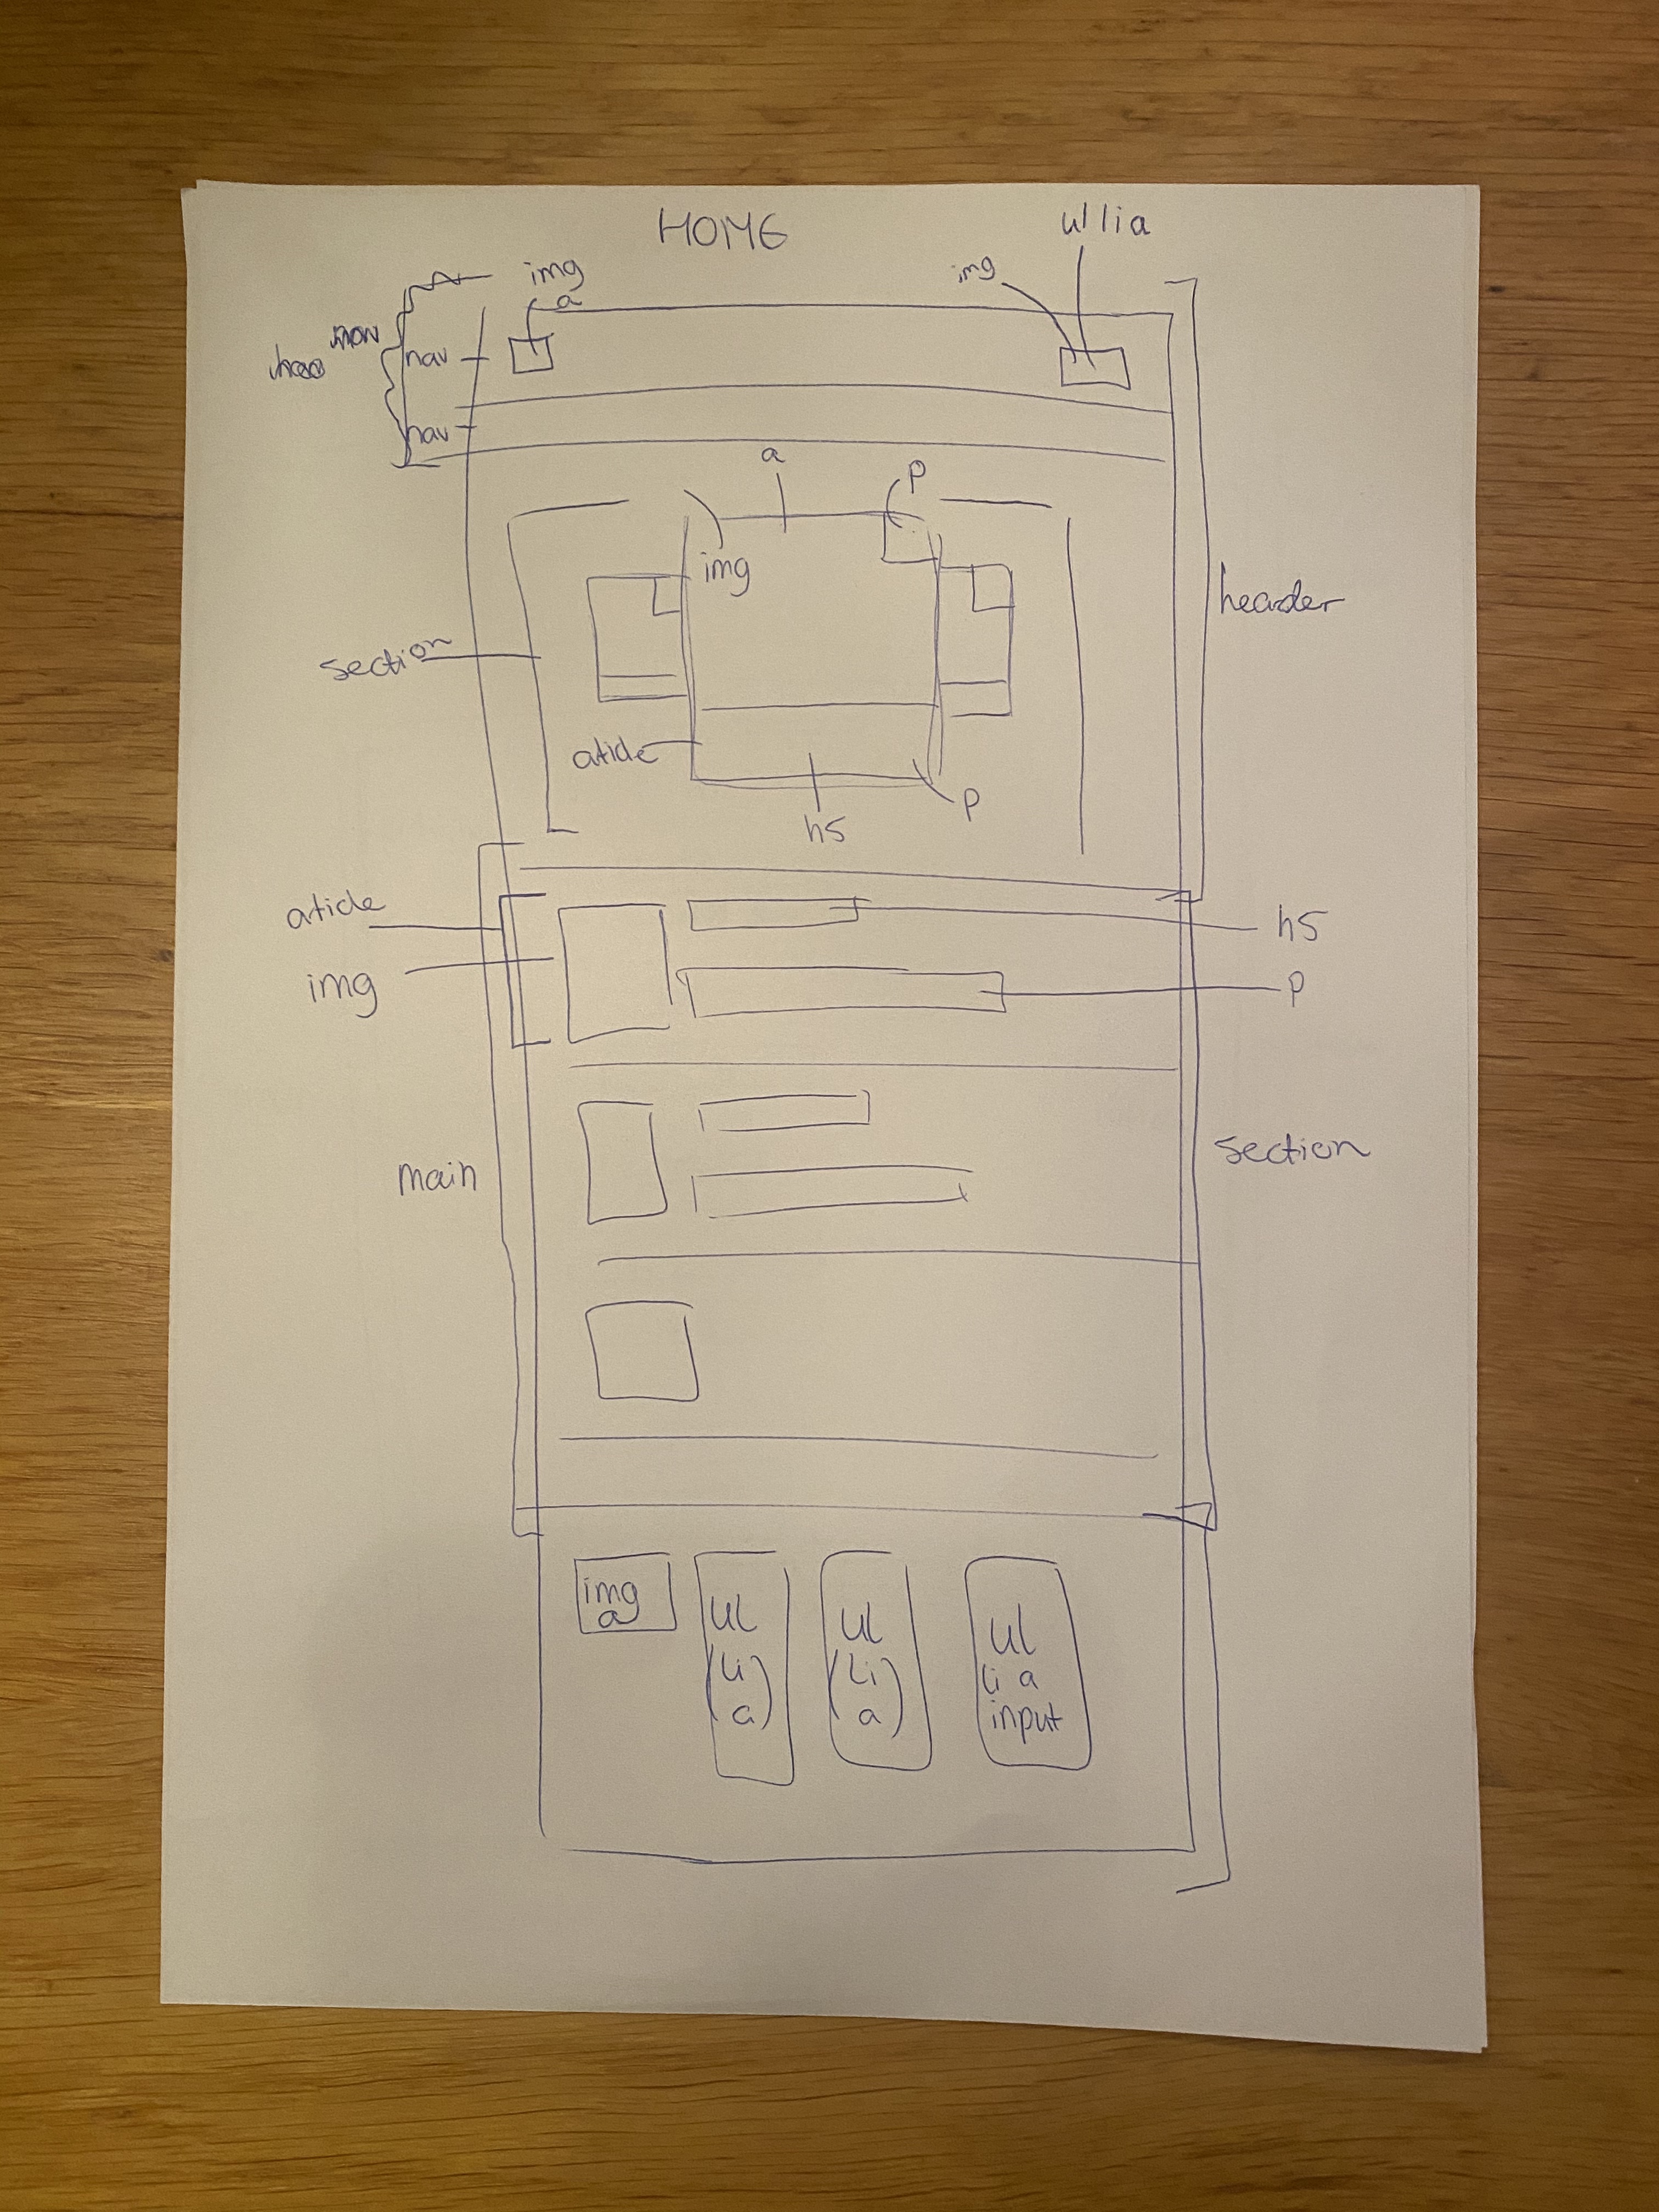 HOME
ul li a
img
a
img
nav
nav
a
p
img
header
section
aticle
p
h5
aticle
h5
img
p
main
section
img
a
ul
(li
a)
ul
(li
a)
ul
li a
input